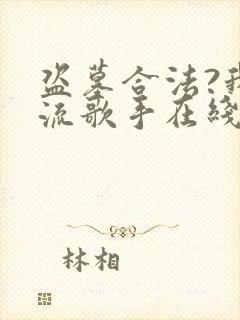 盗墓合法?我
流歌手在线
林相